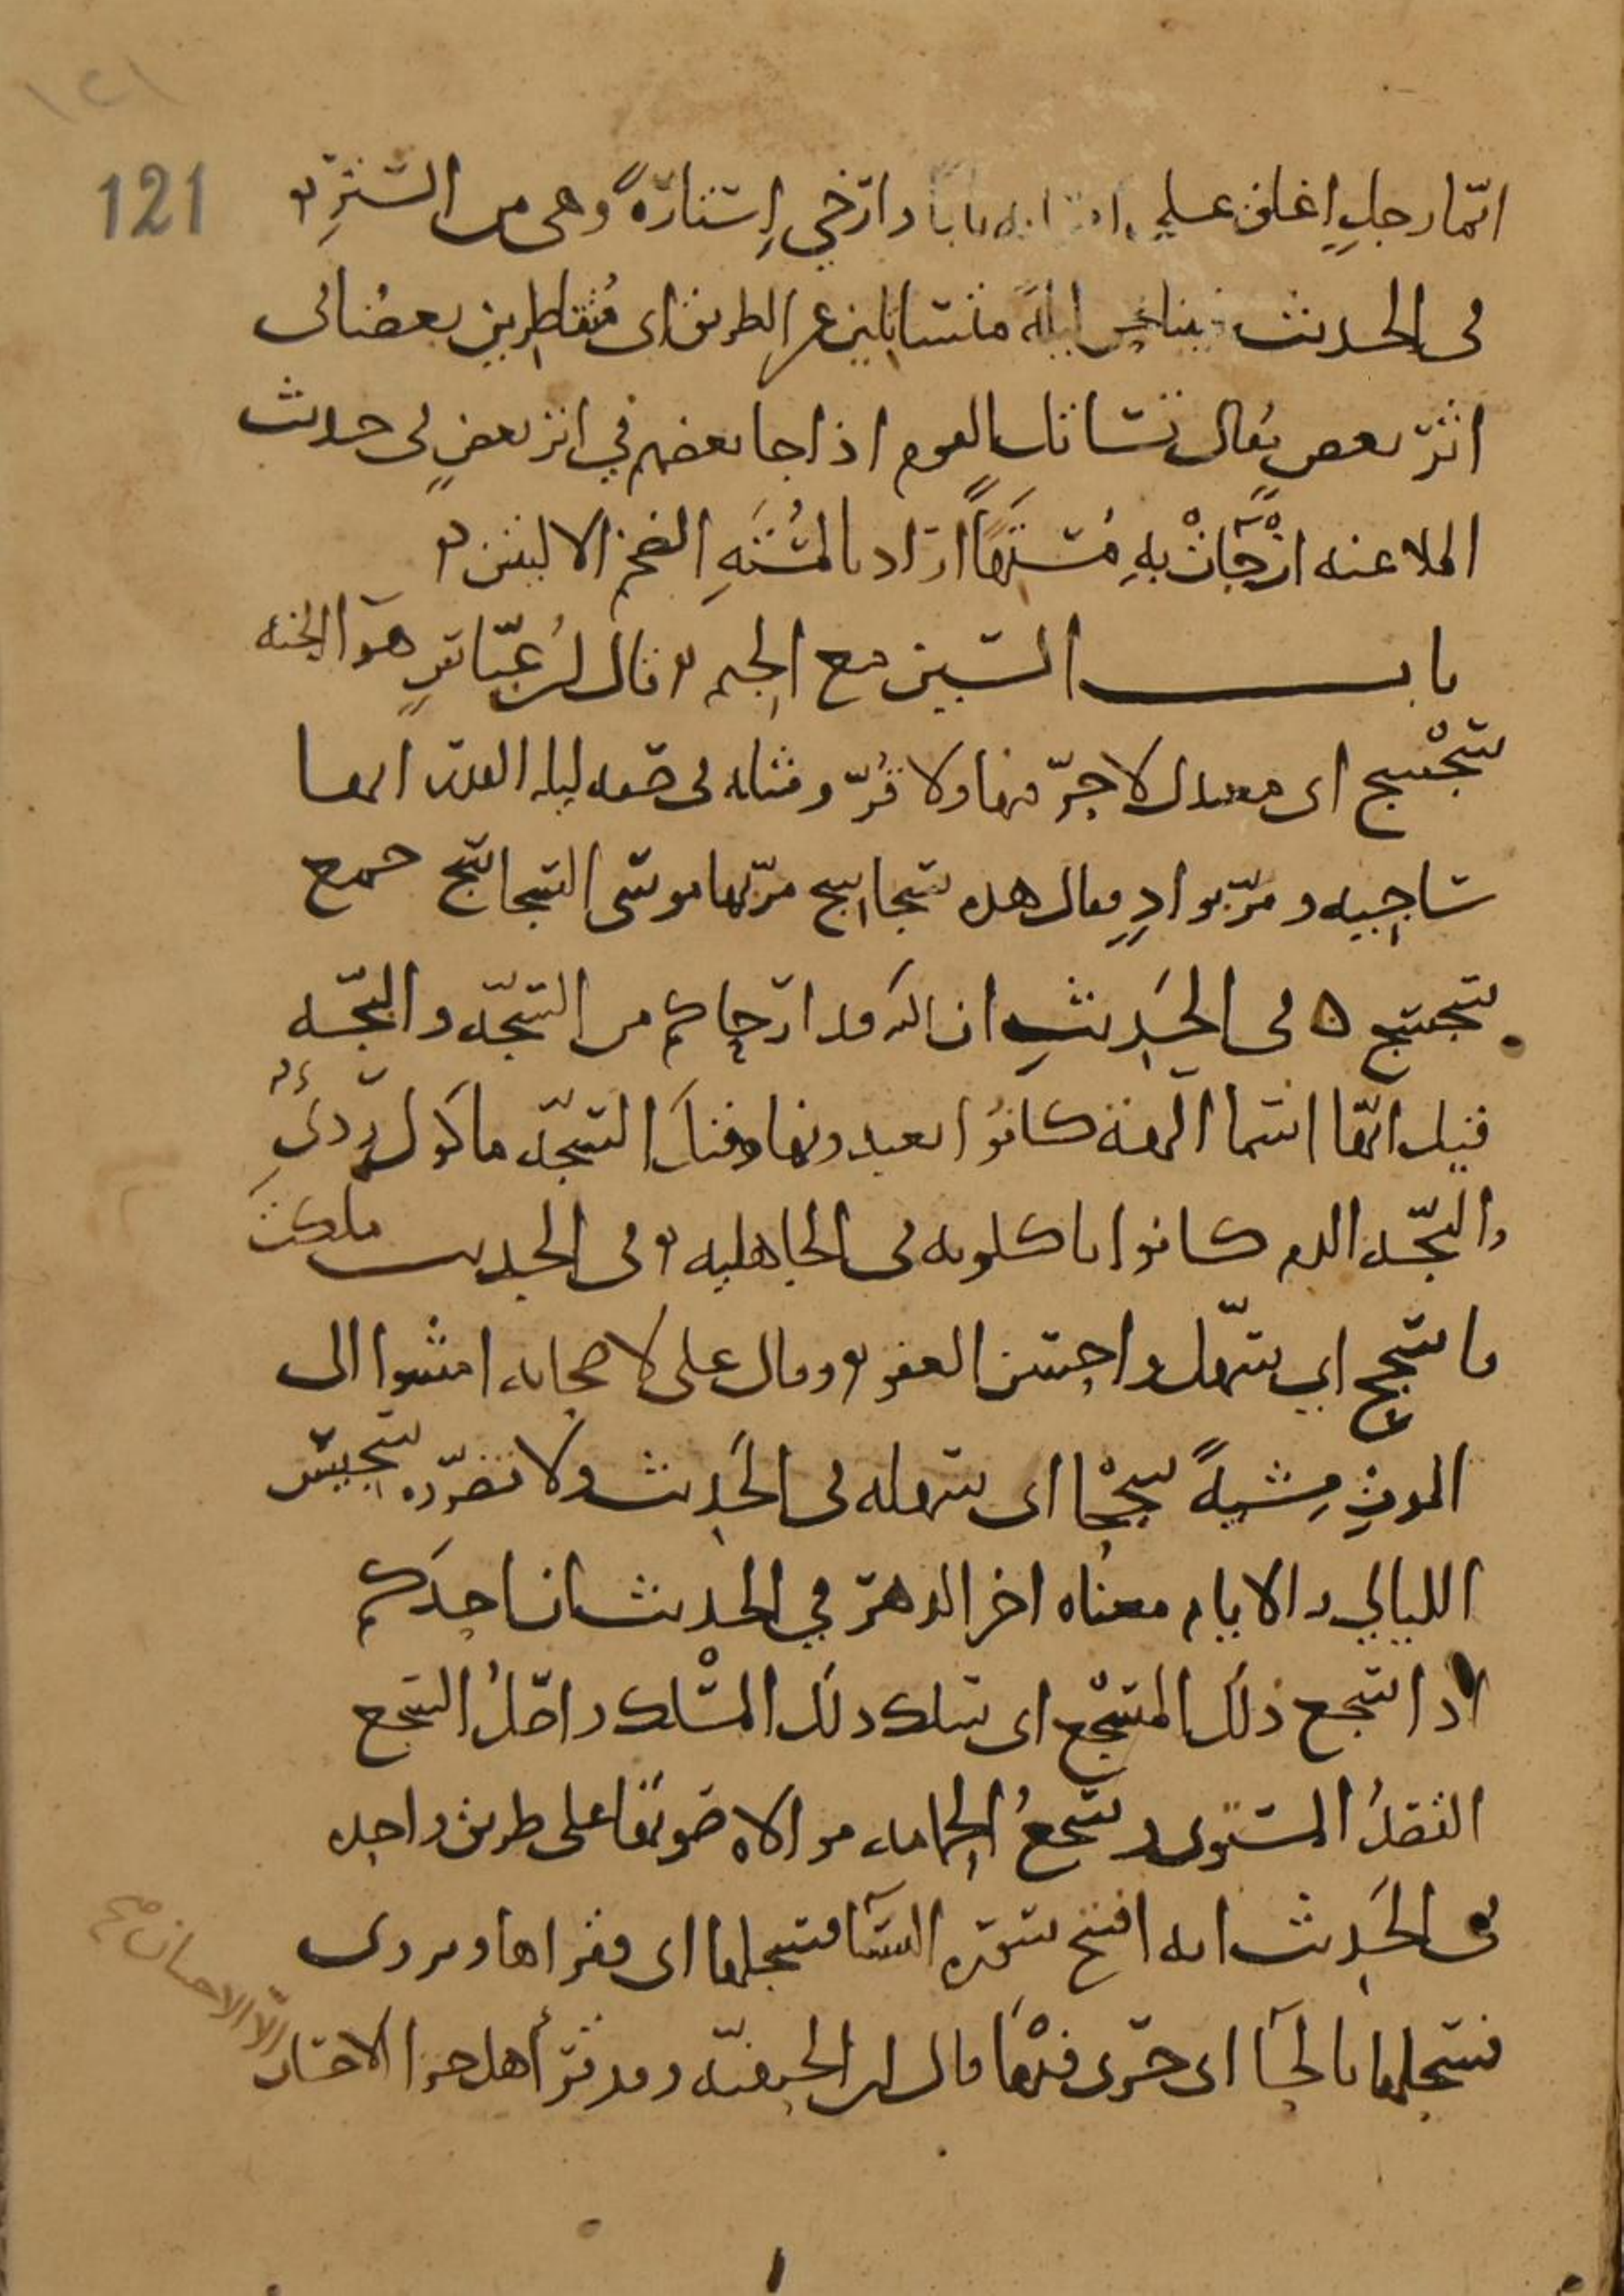 ١٢١
121
ايما رجل اغلق على امراته بابا وارخي إستارة وهي من الستر
في الحديث بينا نحن ليلة متساتلين عن الطريق اي متقاطرين بعضنا في
اثر بعض يقال تساتل القوم اذا جا بعضهم في اثر بعض في حديث
الملاعنه ان جات به مستها اراد بالمسته الضخم الاليتين
باب السين مع الجيم قال ابن عباس هوا الجنه
سجسج اى معتدل لا حر فيها ولا قر ومثله في صفه ليله القدر انها
ساجيه ومر بواد فقال هذه سجاسج مر بها موسى السجاسج جمع
سجسج ه في الحديث ان الله قد اراحكم من السجه والبجه
قيل انها اسما الهة كانوا يعبدونها وقيل السجه ما كول ردئ
والبجه الدم كانوا ياكلونه في الجاهليه وفي الحديث ملكت
فاسجح اي سهل واحسن العفو وقال على لاصحابه امشوا الى
الموت مشية سجحا اى سهله في الحديث ولا تضروه سجيس
الليالي والايام معناه اخر الدهر في الحديث ان احدكم
اذا سجع ذلك المسجع اى سلك ذلك المسلك واصل السجع
القصد المستوى وسجع الحمامه موالاه صوتها على طريق واحده
في الحديث انه افتتح سوره النسا فسجلها اى فقراها ويروى
فسحلها بالحا اى جرى فيها قال ابن الحنفيه وقد قرأ هل جزا الاحسان
الا الاحسان صح